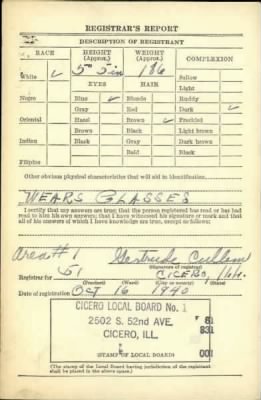 REGISTRAR'S REPORT
DESCRIPTION OF REGISTRANT
RACE HEIGHT (Approx.) WEIGHT (Approx.) COMPLEXION
White ✓ 5' 5 in 186 Sallow
EYES HAIR Light
Negro Blue ✓ Blonde Ruddy
Gray Red Dark ✓
Oriental Hazel Brown ✓ Freckled
Brown Black Light brown
Indian Black Gray Dark brown
Bald Black
Filipino
Other obvious physical characteristics that will aid in identification
WEARS GLASSES
I certify that my answers are true; that the person registered has read or has had
read to him his own answers; that I have witnessed his signature or mark and that
all of his answers of which I have knowledge are true, except as follows:
Area # 1 Gertrude
(Signature of registrar)
Registrar for 61 CICERO, Ill.
(Precinct) (Ward) (City or county) (State)
Date of registration OCT 16 1940
CICERO LOCAL BOARD No. 1
2502 S. 52nd AVE.
CICERO, ILL.
81
831
001
(STAMP OF LOCAL BOARD)
(The stamp of the Local Board having jurisdiction of the registrant
shall be placed in the above space.)